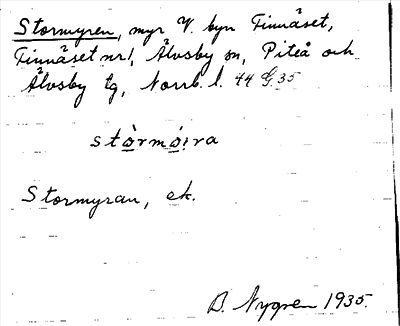 Stormyren, myr V. byn Finnäset,
Finnäset nr 1, Älvsby sn, Piteå och
Älvsby tg, Norrb. l. 44 G 35
stòrmó̤i̯ra
Stormyran, ek.
B. Nygren 1935.